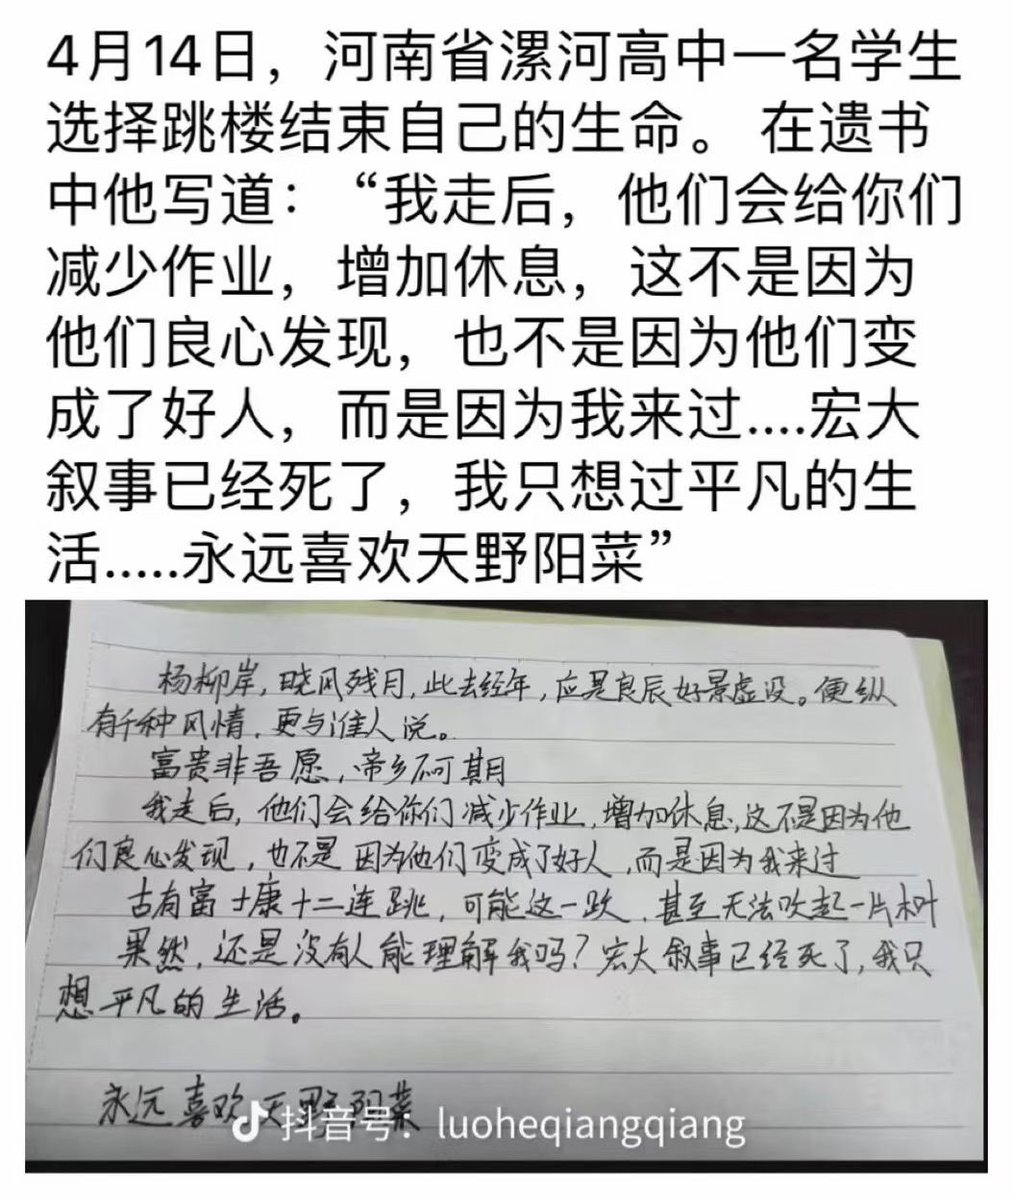 4月14日，河南省漯河高中一名学生
选择跳楼结束自己的生命。 在遗书
中他写道：“我走后，他们会给你们
减少作业，增加休息，这不是因为
他们良心发现，也不是因为他们变
成了好人，而是因为我来过....宏大
叙事已经死了，我只想过平凡的生
活.....永远喜欢天野阳菜”
杨柳岸，晓风残月，此去经年，应是良辰好景虚设。便纵
有千种风情，更与谁人说。
富贵非吾愿，帝乡不可期
我走后，他们会给你们减少作业，增加休息，这不是因为他
们良心发现，也不是因为他们变成了好人，而是因为我来过
古有富士康十二连跳，可能这一跃，甚至无法吹起一片树叶
果然，还是没有人能理解我吗？宏大叙事已经死了，我只
想平凡的生活。
永远喜欢天野阳菜
抖音号：luoheqiangqiang